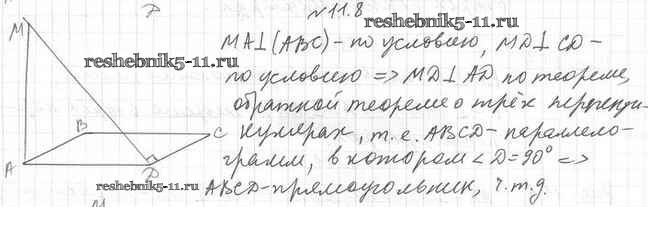 №11.8
reshebnik5-11.ru
M
MA⊥(ABC) – по условию, MD⊥CD –
reshebnik5-11.ru
по условию => MD⊥AD по теореме,
обратной теореме о трёх перпенди-
B
C
кулярах, т.е. ABCD – параллело-
A
D
грамм, в котором <D=90° =>
reshebnik5-11.ru
ABCD – прямоугольник, ч.т.д.
M